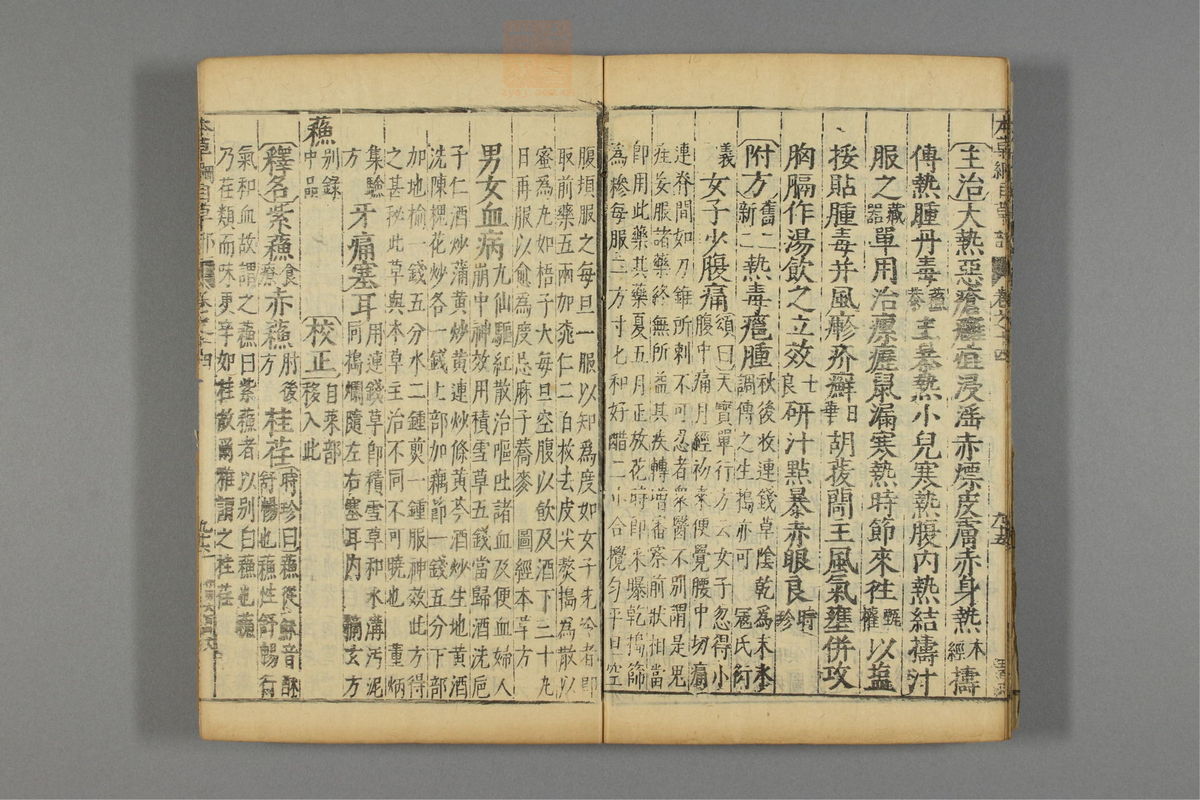 主治大熱惡瘡癰疽浸淫赤熛皮膚赤身熱本經擣
傅熱腫丹毒蘇恭主暴熱小兒寒熱腹內熱結擣汁
服之藏器單用治瘰癧鼠漏寒熱時節來往甄權以鹽
挼貼腫毒并風疹疥癬日華胡菝䕡主風氣壅併攻
胸膈作湯飲之立效士良研汁點暴赤眼良時珍
附方舊二新二熱毒癰腫秋後收連錢草陰乾爲末水
調傅之生搗亦可寇氏衍
義女子少腹痛頌曰天寶單行方云女子忽得小
腹中痛月經初來便覺腰中切痛
連脊間如刀錐所刺不可忍者衆醫不別謂是鬼
疰妄服諸藥終無所益其疾轉增審察前狀相當
即用此藥其藥夏五月正放花時即采曝乾搗篩
爲糝每服二方寸匕和好醋二小合攪勻平旦空
腹頓服之每旦一服以知爲度如女子先冷者即
取前藥五兩加桃仁二百枚去皮尖熬搗為散以
蜜為丸如梧子大每旦空腹以飲及酒下三十丸
日再服以愈為度忌麻子蕎麥圖經本草方
男女血病九仙驅紅散治嘔吐諸血及便血婦人
崩中神效用積雪草五錢當歸酒洗巵
子仁酒炒蒲黃炒黃連炒條黃芩酒炒生地黃酒
洗陳槐花炒各一錢上部加藕節一錢五分下部
加地榆一錢五分水二鍾煎一鍾服神效此方得
之甚秘此草與本草主治不同不可曉也董炳
集驗方牙痛塞耳用連錢草即積雪草和水溝污泥
同搗爛隨左右塞耳內摘玄方
蘇別錄中品校正自菜部移入此
釋名紫蘇食療赤蘇肘後方桂荏時珍曰蘇從穌音酥
舒暢也蘇性舒暢行
氣和血故謂之蘇曰紫蘇者以別白蘇也蘇
乃荏類而味更辛如桂故爾雅謂之桂荏